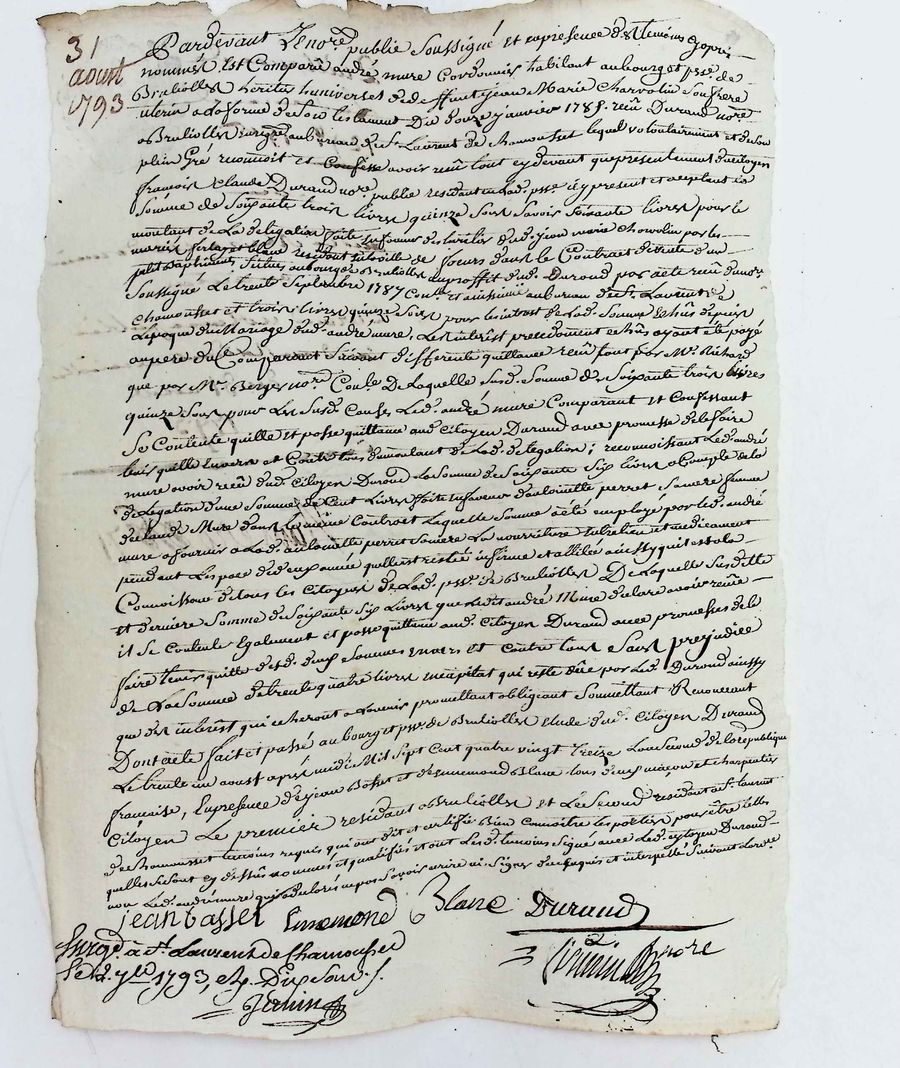 31
aoust
1793
Pardevant le no.re public soussigné et en presence des temoins cy apres
nommés est comparu andré mure cordonnier habitant au bourg et p.sse de
Brulliolles heritier universel de deffunt jean Marie Charvolin son frere
uterin a la forme de son testament du douze janvier 1785 reçu Durand no.re
a Brulliolles enrg.ré au bureau de S.t Laurent de chamousset lequel volontairement et de son
plein gré reconnoit et confesse avoir reçu tout cy devant que presentement du citoyen
françois Claude Durand no.re public residant en lad. p.sse icy present et acceptant la
somme de soixante trois livres quinze sous savoir soixante livres pour le
montant de la delegation faite en faveur de l'hoirie dud. jean marie charvolin par les
mariés et blanc residant en la ville de dans le contract de vente d'un
petit Batiment situé au bourg de Brulliolles au proffit dud. Durand par acte reçu du no.re
soussigné le trente septembre 1787 con.lé et au bureau de S.t Laurent de
chamousset et trois livres quinze sous pour les interets de lad. somme echus depuis
l'epoque du mariage dud. andré mure, les interêts precedement echus ayant eté payé
au pere du comparant suivant differente quittance reçu tant par M.e Richard
que par M.e Berger no.re con.lé De laquelle susd. somme de soixante trois livres
quinze sous pour les susd. causes led. andré mure comparant et confessant
se contente quitte et passe quittance aud. citoyen Durand avec promesse de le faire
tenir quitte envers et contre tous du montant de lad. delegation; reconnoissant led. andré
mure avoir reçu dud. citoyen Durand la somme de soixante six livres a compte de la
delegation d'une somme de cent livres faite en faveur d'antoinette perret sa mere femme
de claude Mure dans le même contrat laquelle somme a eté employé par led. andré
mure a fournir a lad. antoinette perret sa mere la nourriture entretien et medicament
pendant l'espace de deux année qu'elle est restée infirme et allitée ainssy qu'il est a la
connoissance de tous les citoyens de lad. p.sse de Brulliolles De laquelle susditte
et derniere somme de soixante six livres que ledit andré Mure declare avoir reçue
il se contente egalement et passe quittance aud. citoyen Durand avec promesses de le
faire tenir quitte desd. deux sommes envers et contre tous sans prejudice
de la somme de trente quatre livres en capital qui reste düe par led. Durand ainssy
que des interêt qui echeront a l'avenir promettant obligeant soumettant Renonceant
Dont acte fait et passé au bourg et p.sse de Brulliolles etude dud. citoyen Durand
Le trente un aoust après midi Mil sept cent quatre vingt treize L'an second de la republique
française, En presence de jean Basset et d'ennemond Blanc tous deux maçon et charpentier
citoyen Le premier residant a Brulliolles et Le second residant a S.t Laurent
de chamousset temoins requis qui ont dit et certifié bien connoitre les parties pour être telles
qu'elles se sont cy dessus nommés et qualifiés et ont lesd. temoins signé avec led. citoyen Durand
non led. andré mure qui a declaré ne pas savoir ecrire ni signer de ce requis et interpellé suivant l'ord.ce
jean basset Ennemond Blanc Durand
Enrgé à S.t Laurent de Chamousset
Le 2 7bre 1793, Dix sous
no.re